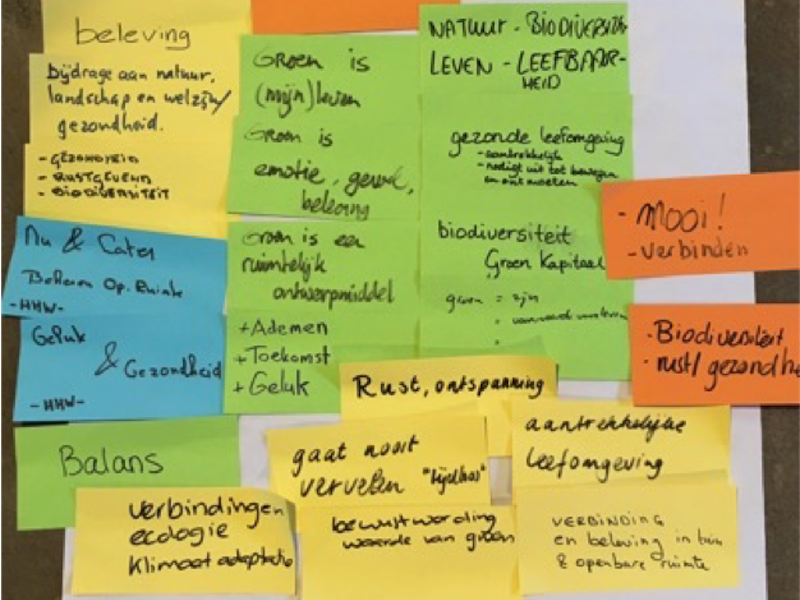 beleving
bijdrage aan natuur,
landschap en welzijn/
gezondheid.
- GEZONDHEID
- RUSTGEVEND
- BIODIVERSITEIT
Nu & Later
Beheren Op. Ruimte
-HHW-
Geluk
& Gezondheid
-HHW-
Groen is
(mijn) leven
Groen is
emotie, gevoel,
beleving
Groen is een
ruimtelijk
ontwerpmiddel
+ Ademen
+ Toekomst
+ Geluk
NATUUR - BIODIVERSI
LEVEN - LEEFBAAR-
HEID
gezonde leefomgeving
- aantrekkelijk
- nodigt uit tot bewegen
en ontmoeten
biodiversiteit
Groen Kapitaal
groen = zijn
- Mooi!
- verbinden
- Biodiversiteit
- rust/ gezondhe
Rust, ontspanning
Balans
gaat nooit
vervelen "tijdloos"
aantrekkelijke
leefomgeving
verbindingen
ecologie
klimaatadaptatie
bewustwording
waarde van groen
VERBINDING
en beleving in tuin
& openbare ruimte